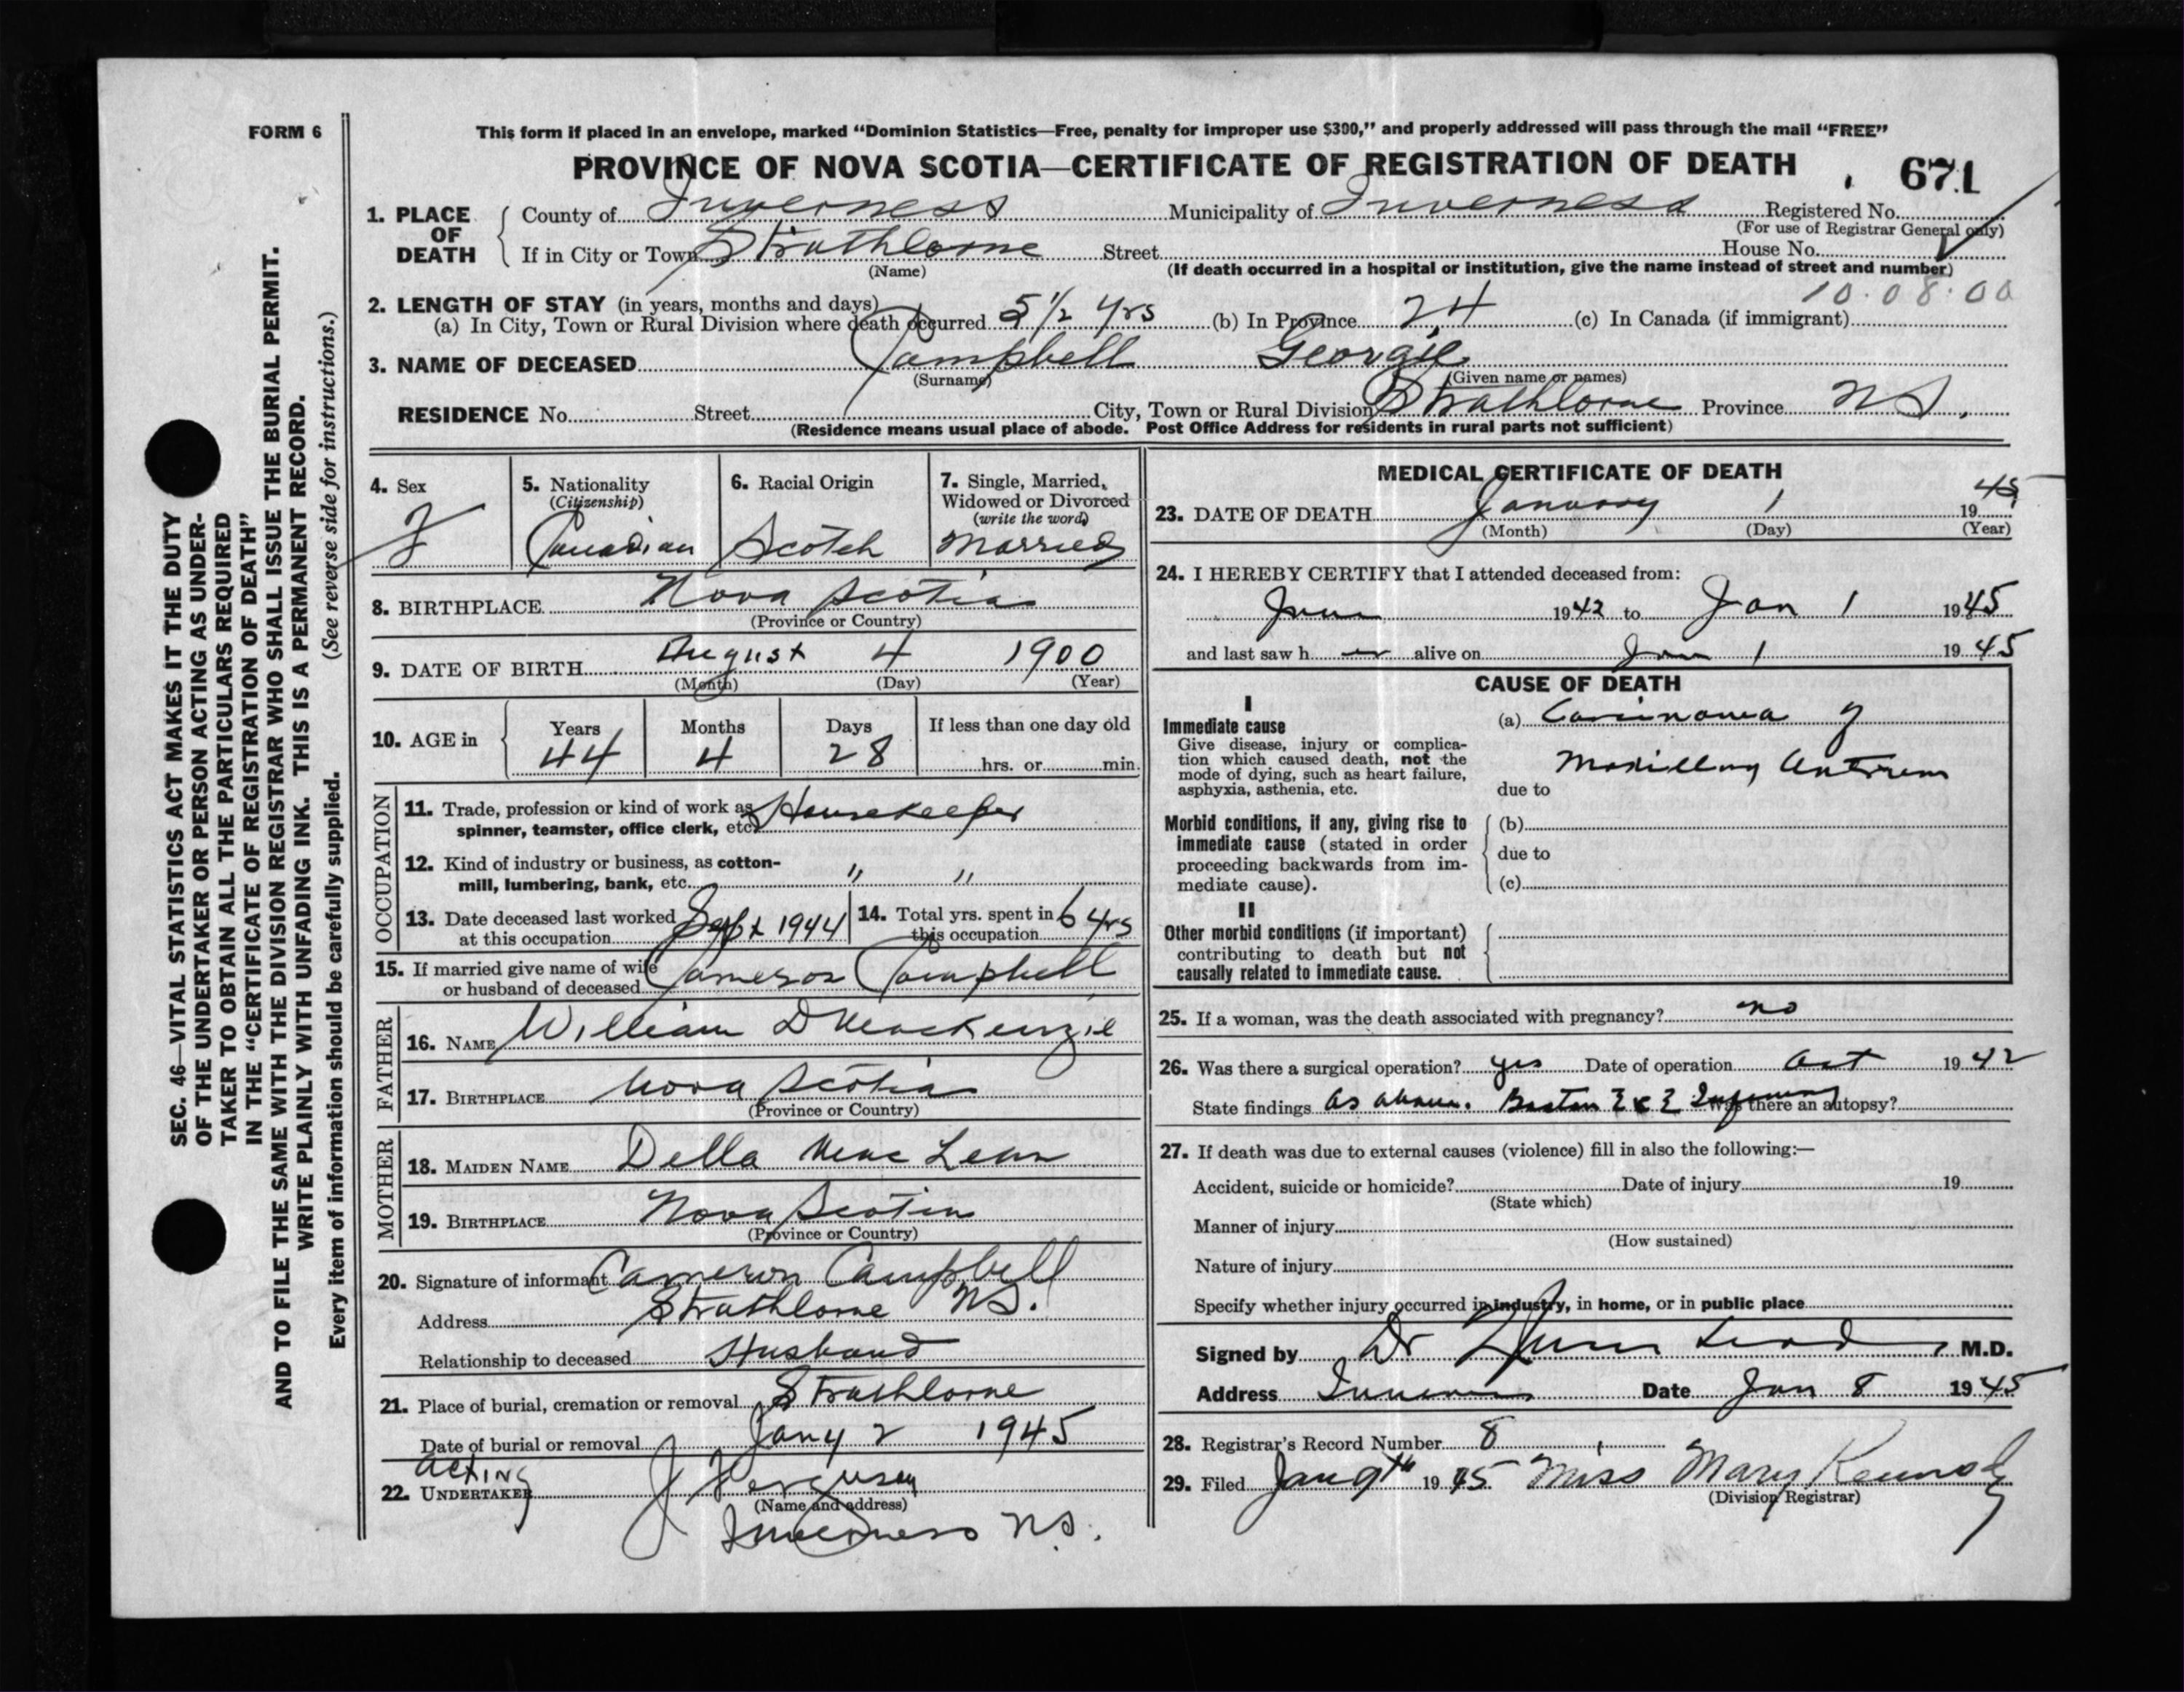 FORM 6
This form if placed in an envelope, marked "Dominion Statistics—Free, penalty for improper use $300," and properly addressed will pass through the mail "FREE"
PROVINCE OF NOVA SCOTIA—CERTIFICATE OF REGISTRATION OF DEATH 671
1. PLACE OF DEATH County of Inverness Municipality of Inverness Registered No.
(For use of Registrar General only)
If in City or Town Strathlorne Street House No.
(Name) (If death occurred in a hospital or institution, give the name instead of street and number)
10·08·00
2. LENGTH OF STAY (in years, months and days)
(a) In City, Town or Rural Division where death occurred 5½ yrs (b) In Province 24 (c) In Canada (if immigrant)
3. NAME OF DECEASED Campbell Georgie
(Surname) (Given name or names)
RESIDENCE No. Street City, Town or Rural Division Strathlorne Province N.S.
(Residence means usual place of abode. Post Office Address for residents in rural parts not sufficient)
4. Sex
F
5. Nationality
(Citizenship)
Canadian
6. Racial Origin
Scotch
7. Single, Married, Widowed or Divorced
(write the word)
Married
8. BIRTHPLACE Nova Scotia
(Province or Country)
9. DATE OF BIRTH August 4 1900
(Month) (Day) (Year)
10. AGE in Years Months Days If less than one day old
44 4 28 hrs. or min.
OCCUPATION
11. Trade, profession or kind of work as Housekeeper
spinner, teamster, office clerk, etc.
12. Kind of industry or business, as cotton-
mill, lumbering, bank, etc. " "
13. Date deceased last worked at this occupation Sept 1944
14. Total yrs. spent in this occupation 6 yrs
15. If married give name of wife
or husband of deceased Cameron Campbell
FATHER
16. NAME William D MacKenzie
17. BIRTHPLACE Nova Scotia
(Province or Country)
MOTHER
18. MAIDEN NAME Della MacLean
19. BIRTHPLACE Nova Scotia
(Province or Country)
20. Signature of informant Cameron Campbell
Address Strathlorne N.S.
Relationship to deceased Husband
21. Place of burial, cremation or removal Strathlorne
Date of burial or removal Jany 2 1945
Acting
22. UNDERTAKER J Ferguson
(Name and address)
Inverness N.S.
MEDICAL CERTIFICATE OF DEATH
23. DATE OF DEATH January 1 1945
(Month) (Day) (Year)
24. I HEREBY CERTIFY that I attended deceased from:
June 1942 to Jan 1 1945
and last saw h er alive on Jan 1 1945
CAUSE OF DEATH
I
Immediate cause
Give disease, injury or complica-
tion which caused death, not the
mode of dying, such as heart failure,
asphyxia, asthenia, etc.
(a) Carcinoma of
Maxillary Antrum
due to
Morbid conditions, if any, giving rise to
immediate cause (stated in order
proceeding backwards from im-
mediate cause).
(b)
due to
(c)
II
Other morbid conditions (if important)
contributing to death but not
causally related to immediate cause.
25. If a woman, was the death associated with pregnancy? no
26. Was there a surgical operation? yes Date of operation Oct 1942
State findings as above. Boston E & E Infirmary Was there an autopsy?
27. If death was due to external causes (violence) fill in also the following:—
Accident, suicide or homicide? Date of injury 19
(State which)
Manner of injury
(How sustained)
Nature of injury
Specify whether injury occurred in industry, in home, or in public place
Signed by Dr M.D.
Address Inverness Date Jan 8 1945
28. Registrar's Record Number 8
29. Filed Jan 9th 1945 Miss Mary Kennedy
(Division Registrar)
SEC. 46—VITAL STATISTICS ACT MAKES IT THE DUTY
OF THE UNDERTAKER OR PERSON ACTING AS UNDER-
TAKER TO OBTAIN ALL THE PARTICULARS REQUIRED
IN THE "CERTIFICATE OF REGISTRATION OF DEATH"
AND TO FILE THE SAME WITH THE DIVISION REGISTRAR WHO SHALL ISSUE THE BURIAL PERMIT.
WRITE PLAINLY WITH UNFADING INK. THIS IS A PERMANENT RECORD.
Every item of information should be carefully supplied. (See reverse side for instructions.)